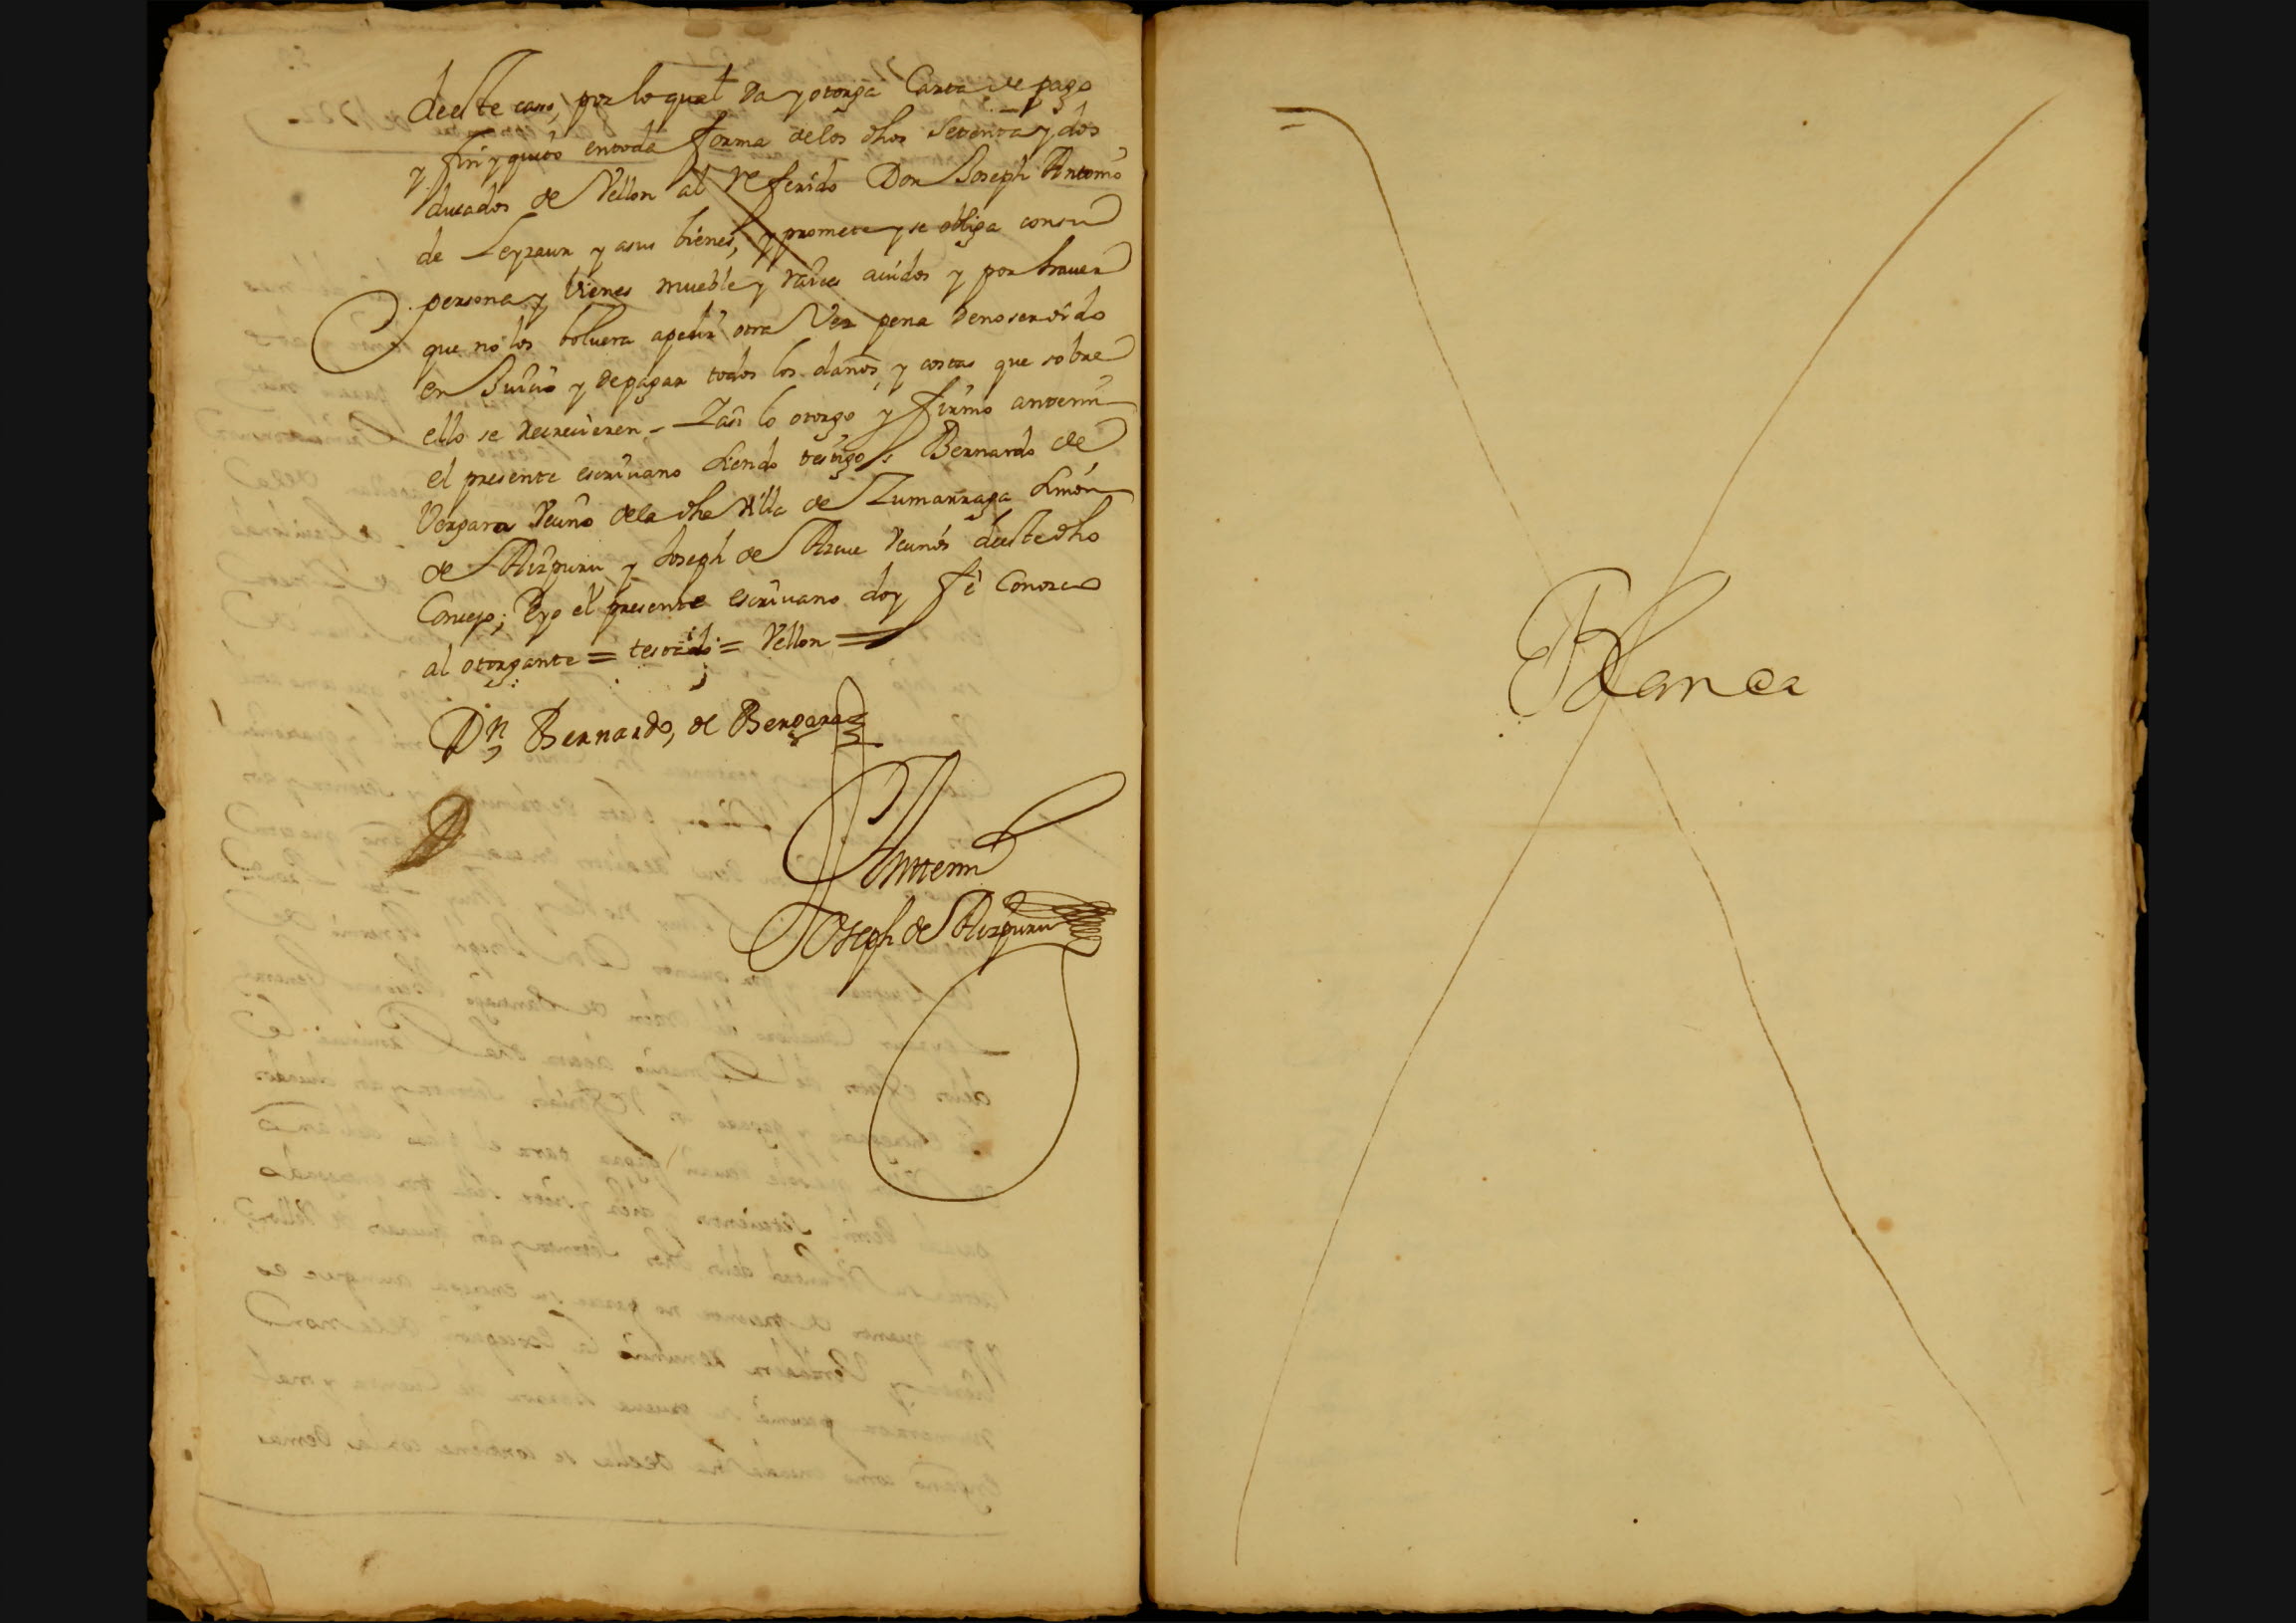 deeste caso, por lo qual Da y otorga Carta de pago
y finyquito entoda forma delos dhos Setenta y dos
ducados de Vellon al Referido Don Joseph Antonio
de Leyzaur y asus bienes, y promete y se obliga consu
persona y bienes mueble y raices auidos y por hauer
que no los boluera apedir otra Vez pena denoser oido
en Juicio y depagar todos los daños, y costas que sobre
ello se recrecieren - Iasi lo otorgo y firmo antemi
el presente escriuano siendo testigos Bernardo de
Vergara Vecino dela dha Villa de Zumarraga Simon
de Aizpuru y Joseph de Vecinos deeste dho
Concejo; Eyo el presente escriuano doy fe Conozco
al otorgante = testado = Vellon =
Dn Bernardo, de Bergara
Antemi
Joseph de Aizpuru
Blanca